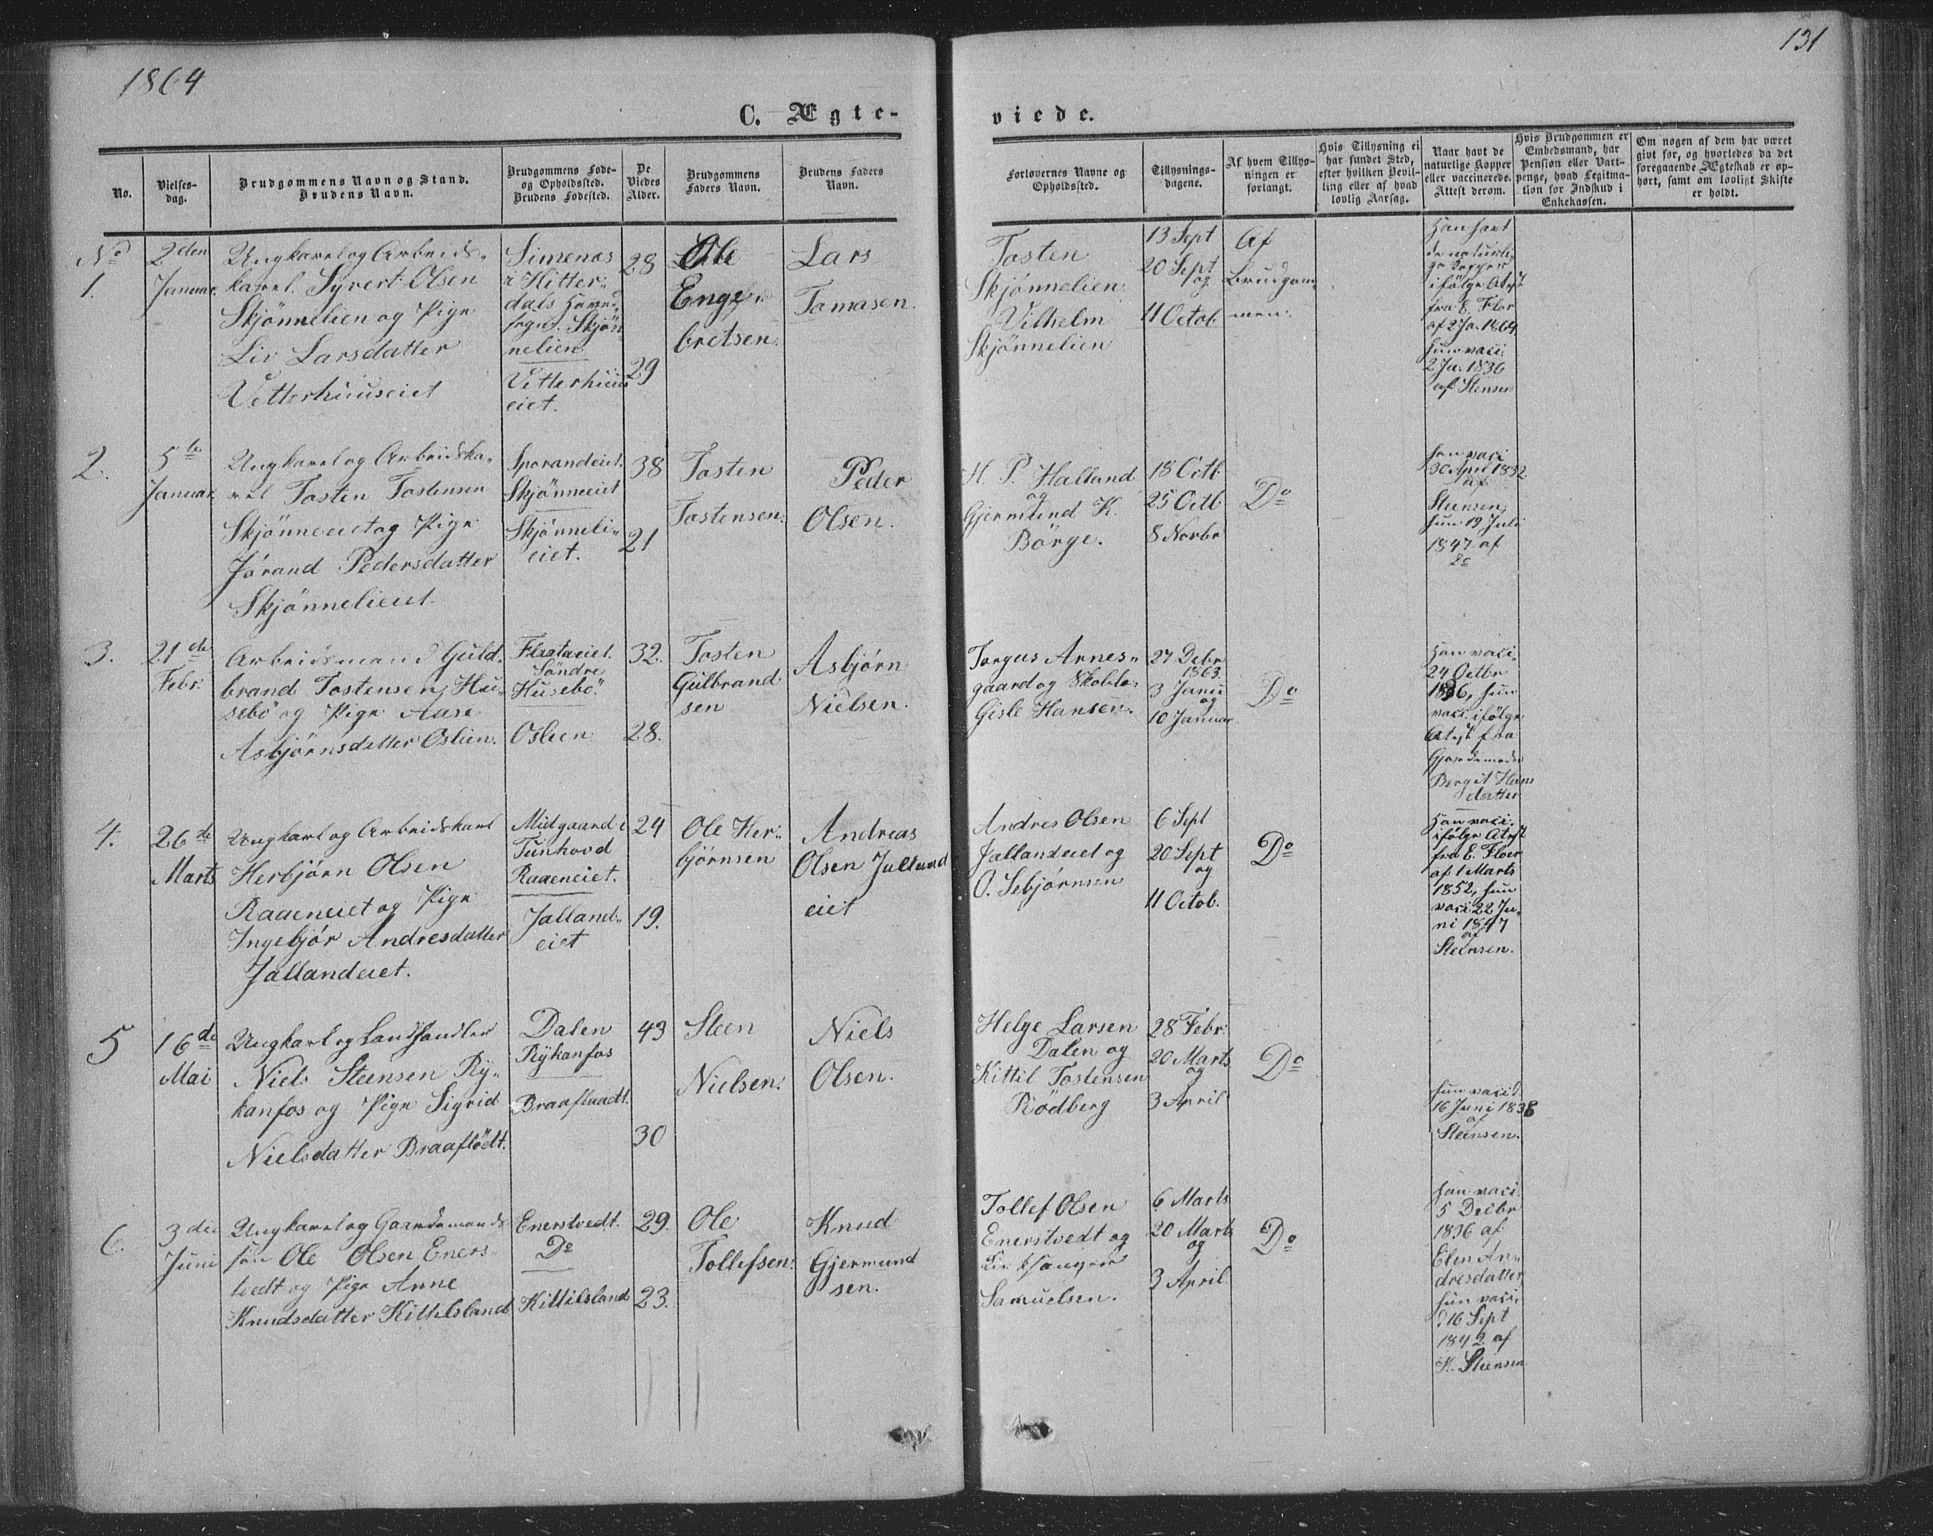 1864
131
C. Ægte-
viede.
No.
Vielses-
dag.
Brudgommens Navn og Stand.
Brudens Navn.
Brudgommens Føde-
og Opholdssted.
Brudens Fødested.
De
Viedes
Alder.
Brudgommens
Faders Navn.
Brudens Faders
Navn.
Forlovernes Navne og
Opholdssted.
Tillysnings-
dagene.
Af hvem Tillys-
ningen er
forlangt.
Hvis Tillysning ei
har fundet Sted,
efter hvilken Bevil-
ling eller af hvad
lovlig Aarsag.
Naar havt de
naturlige Kopper
eller vaccinerede.
Attest derom.
Hvis Brudgommen er
Embedsmand, har
Pension eller Vart-
penge, hvad Legitima-
tion for Indskud i
Enkekassen.
Om nogen af dem har været
givt før, og hvorledes da det
foregaaende Ægteskab er op-
hørt, samt om lovligt Skifte
er holdt.
No
1.
2den
Januar.
Ungkarl og Arbeids-
karl. Syvert Olsen
Skjønnelien og Pige
Liv Larsdatter
Vetterhuuseiet
Simenæs
i Hitter-
dals Hoved-
sogn. Skjøn
nelien
Vetterhuus
eiet.
28
29
Ole
Enge-
bretsen.
Lars
Tomasen.
Tosten
Skjønnelien
Vilhelm
Skjønnelien
13 Sept
20 Sept
og
11 Octob.
Af
Brudgom-
men.
Han havt
de naturli-
ge Kopper
ifølge Atest
fra E. Flor
af 2 Ja. 1864.
hun vaci.
2 Ja. 1836
af Stensen
2.
5te
Januar.
Ungkarl og Arbeidska-
rel Tosten Tostensen
Skjønneeiet og Pige
Jórand Pedersdatter
Skjönnelieeiet.
Sporandeiet.
Skjønneeiet
Skjønneli-
eiet.
38
21
Tosten
Tostensen.
Peder
Olsen.
H. P. Halland
og
Gjermund K.
Börge.
18 Octb.
25 Octb
8 Novbr
Do
han vaci
30 April 1832
af
Steensen,
hun 19 Juli
1847 af
Do
3.
21de
Febr.
Arbeidsmand Guld-
brand Tostensen Hu-
sebö og Pige Aase
Asbjørnsdatter Oslien.
Flaataeiet.
Söndre
Husebö.
Oslien
32.
28.
Tosten
Gulbrand
sen
Asbjørn
Nielsen.
Torgus Arnes-
gaard og
Gisle Hansen.
27 Debr
1863.
3 Janu
og
10 Januar
Do
Han vaci.
24 Octbr
1836, hun
vaci. ifølge
Atest fra
Gjordemoder
Bergit Hans
datter
4.
26de
Marts
Ungkarl og Arbeidskarl
Herbjörn Olsen
Raaeneiet og Pige
Ingebjór Andresdatter
Jallandeiet.
Midgaard i
Tunhovd
Raaeneiet.
Jalland-
eiet
24
19.
Ole Her-
bjørnsen
Andreas
Olsen Jallund
eiet
Andres Olsen
Jallandeiet og
O. Sebjørnsen
6 Sept
20 Sept
og
11 Octob.
Do
Han vaci.
ifølge Atest
fra E. Floer
af 1 Marts
1852, hun
vaci. 22 Ju-
ni 1847
af
Steensen.
5
16de
Mai
Ungkarl og Landhandler
Niels Steensen Ry-
kanfos og Pige Sigrid
Nielsdatter Braaflödt.
Dalen
Rykanfos
Braaflaadt.
43
30
Steen
Nielsen.
Niels
Olsen.
Helge Larsen
Dalen og
Kittil Tostensen
Rödberg
28 Febr.
20 Marts
og
3 April
Do
hun vaci.
16 Juni 1838
af
Steensen.
6.
3die
Juni
Ungkarl og Gaardmands
søn Ole Olsen Eners-
tvedt og Pige Anne
Knudsdatter Kittilsland
Enerstvedt.
Do
Kittilsland
29.
23.
Ole
Tollefsen.
Knud
Gjermund
sen.
Tollef Olsen
Enerstvedt og
Samuelsen.
6 Marts
20 Marts
og
3 April
Do
han vaci.
5 Decbr
1836 af
Elen An-
dresdatter,
hun vaci.
16 Sept
1842 af
K. Steensen